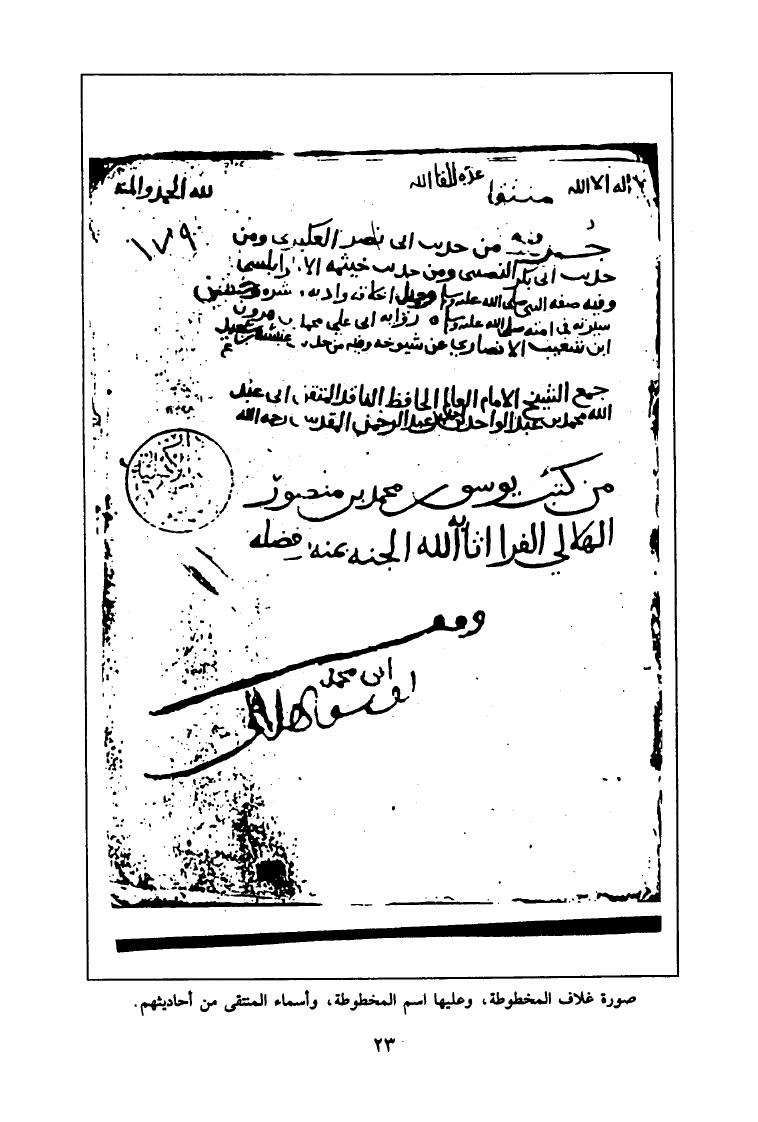 لا اله الا الله عدة للقا الله لله الحمد والمنه
منتقا
١٧٩
جزء فيه من حديث ابي نصر العكبري ومن
حديث ابي بكر النصيبي ومن حديث خيثمه الاطرابلسي
وفيه صفه النبي صلى الله عليه وسلم و اخلاقه وادبه
سيرته في امته صلى الله عليه وسلم رواية ابي علي محمد بن هرون
ابن شعيب الانصاري عن شيوخه وفيه من حديث
جمع الشيخ الامام العالم الحافظ الناقد المتقن ابي عبد
الله محمد بن عبد الواحد بن احمد بن عبد الرحمن المقدسي رحمه الله
من كتب يوسف بن محمد بن منصور
الهلالي الفرا اثابه الله الجنه بمنه وفضله
ابن محمد
الهلالي
صورة غلاف المخطوطة، وعليها اسم المخطوطة، وأسماء المنتقى من أحاديثهم.
٢٣